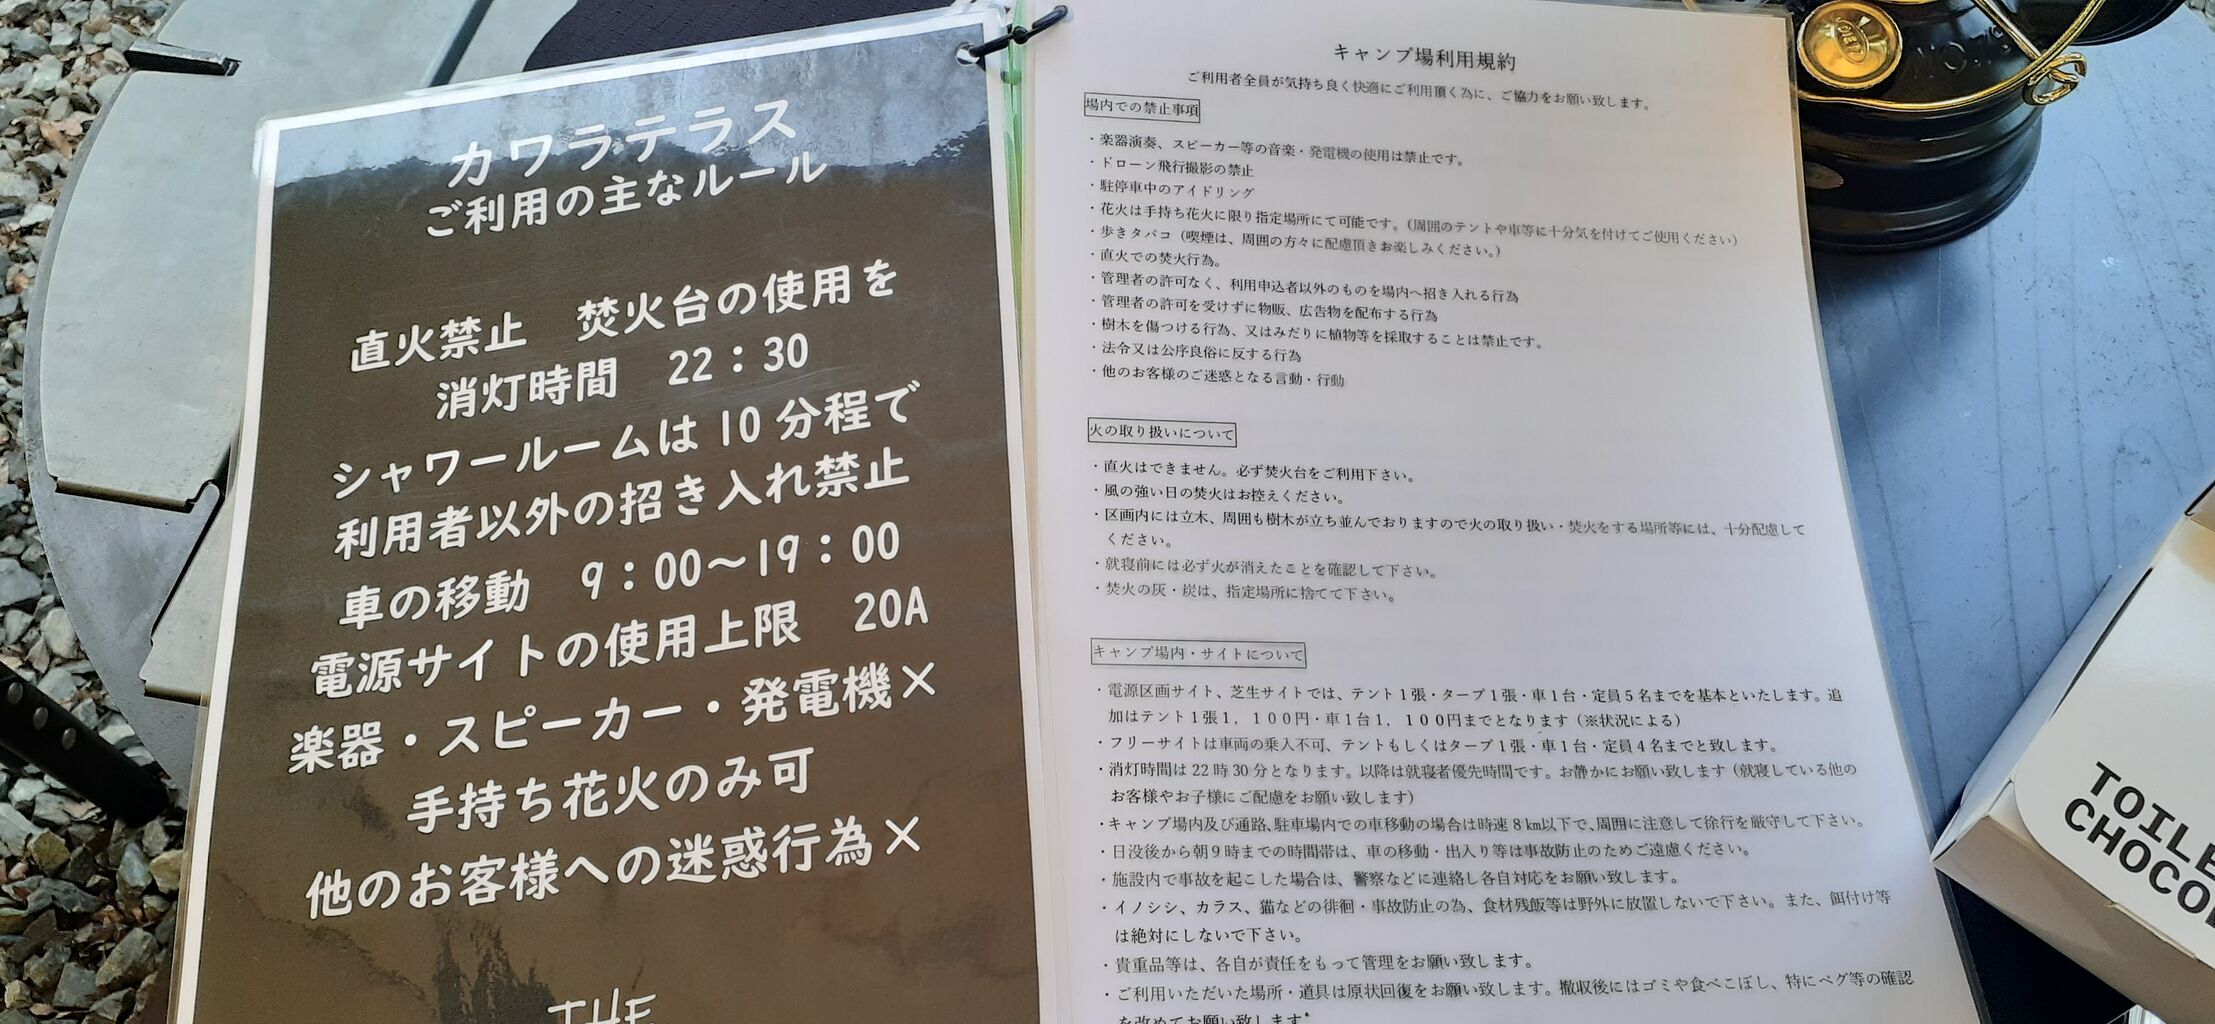 カワラテラス
ご利用の主なルール
直火禁止　焚火台の使用を
消灯時間　22：30
シャワールームは10分程で
利用者以外の招き入れ禁止
車の移動　9：00〜19：00
電源サイトの使用上限　20A
楽器・スピーカー・発電機×
手持ち花火のみ可
他のお客様への迷惑行為×
THE
キャンプ場利用規約
ご利用者全員が気持ち良く快適にご利用頂く為に、ご協力をお願い致します。
場内での禁止事項
・楽器演奏、スピーカー等の音楽・発電機の使用は禁止です。
・ドローン飛行撮影の禁止
・駐停車中のアイドリング
・花火は手持ち花火に限り指定場所にて可能です。（周囲のテントや車等に十分気を付けてご使用ください）
・歩きタバコ（喫煙は、周囲の方々に配慮頂きお楽しみください。）
・直火での焚火行為。
・管理者の許可なく、利用申込者以外のものを場内へ招き入れる行為
・管理者の許可を受けずに物販、広告物を配布する行為
・樹木を傷つける行為、又はみだりに植物等を採取することは禁止です。
・法令又は公序良俗に反する行為
・他のお客様のご迷惑となる言動・行動
火の取り扱いについて
・直火はできません。必ず焚火台をご利用下さい。
・風の強い日の焚火はお控えください。
・区画内には立木、周囲も樹木が立ち並んでおりますので火の取り扱い・焚火をする場所等には、十分配慮して
ください。
・就寝前には必ず火が消えたことを確認して下さい。
・焚火の灰・炭は、指定場所に捨てて下さい。
キャンプ場内・サイトについて
・電源区画サイト、芝生サイトでは、テント１張・タープ１張・車１台・定員５名までを基本といたします。追
加はテント１張１，１００円・車１台１，１００円までとなります（※状況による）
・フリーサイトは車両の乗入不可、テントもしくはタープ１張・車１台・定員４名までと致します。
・消灯時間は22時30分となります。以降は就寝者優先時間です。お静かにお願い致します（就寝している他の
お客様やお子様にご配慮をお願い致します）
・キャンプ場内及び通路、駐車場内での車移動の場合は時速８km以下で、周囲に注意して徐行を厳守して下さい。
・日没後から朝９時までの時間帯は、車の移動・出入り等は事故防止のためご遠慮ください。
・施設内で事故を起こした場合は、警察などに連絡し各自対応をお願い致します。
・イノシシ、カラス、猫などの徘徊・事故防止の為、食材残飯等は野外に放置しないで下さい。また、餌付け等
は絶対にしないで下さい。
・貴重品等は、各自が責任をもって管理をお願い致します。
・ご利用いただいた場所・道具は原状回復をお願い致します。撤収後にはゴミや食べこぼし、特にペグ等の確認
を改めてお願い致します。
TOILE
CHOCO